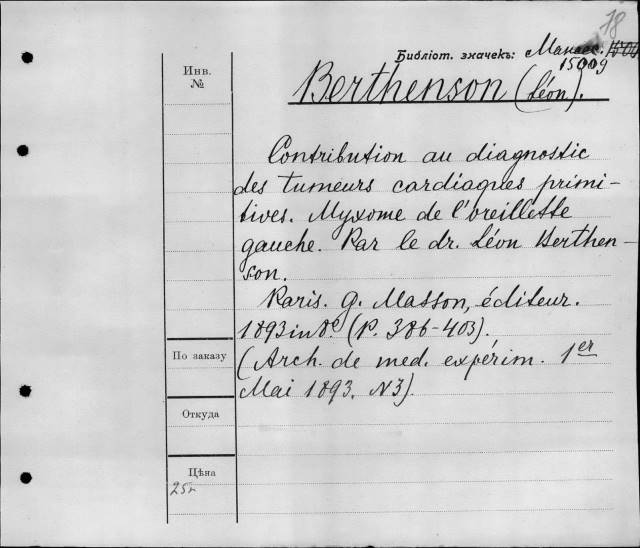 78
Библіот. значекъ:
15009
Инв.
№
Berthenson (Léon).
Contribution au diagnostic
des tumeurs cardiaques primi-
tives. Myxome de l'oreillette
gauche. Par le dr. Léon Berthen-
son.
Paris. G. Masson, éditeur.
1893 in 8º. (P. 386-403).
(Arch. de med. expérim. 1er
Mai 1893. N3).
По заказу
Откуда
Цѣна